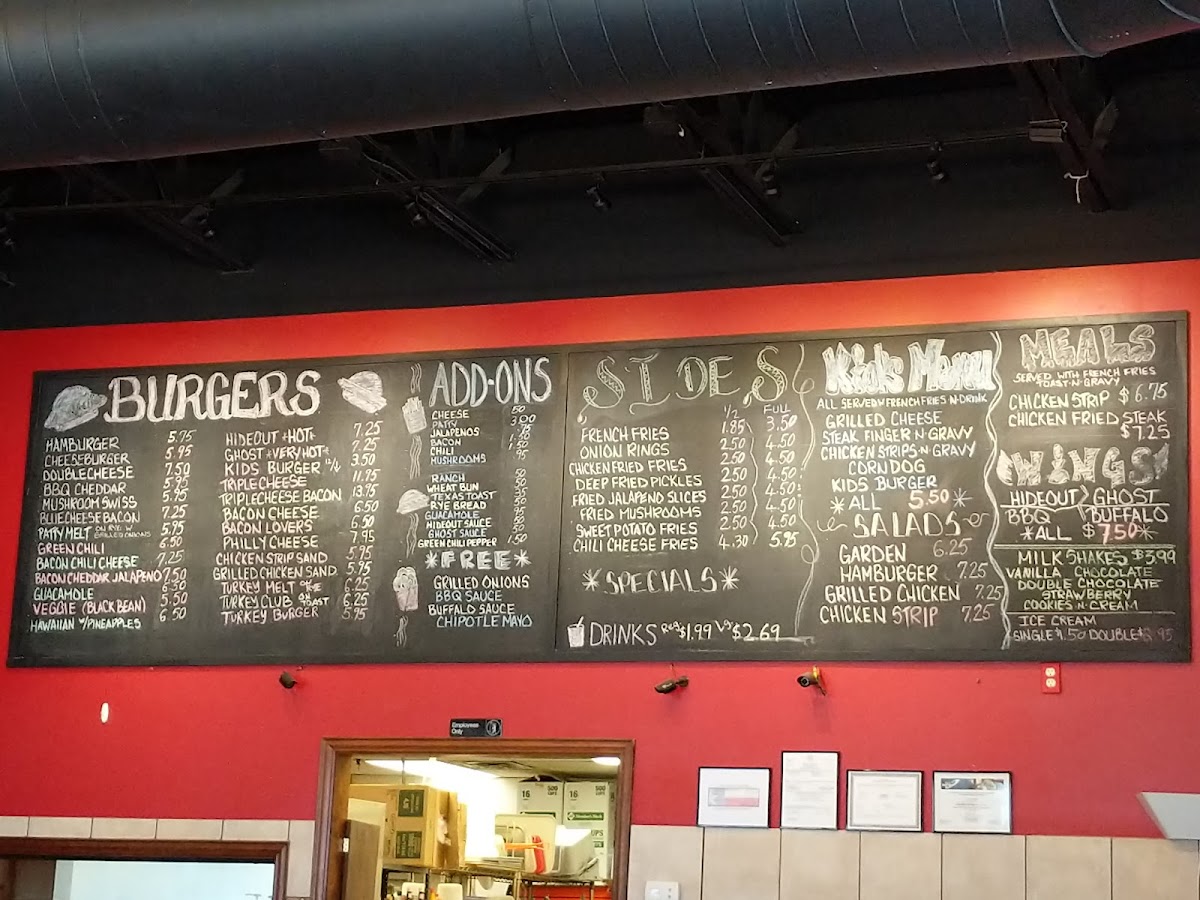 BURGERS
HAMBURGER 5.75
CHEESEBURGER 5.95
DOUBLE CHEESE 7.50
BBQ CHEDDAR 5.95
MUSHROOM SWISS 5.95
BLUECHEESE BACON 7.25
PATTY MELT ON RYE W/ GRILLED ONIONS 5.95
GREEN CHILI 6.50
BACON CHILI CHEESE 7.25
BACON CHEDDAR JALAPENO 7.50
GUACAMOLE 6.50
VEGGIE (BLACK BEAN) 5.50
HAWAIIAN W/PINEAPPLES 6.50
HIDEOUT *HOT* 7.25
GHOST *VERY HOT* 7.25
KIDS BURGER 3.50
TRIPLE CHEESE 11.95
TRIPLECHEESE BACON 13.75
BACON CHEESE 6.50
BACON LOVERS 6.50
PHILLY CHEESE 7.95
CHICKEN STRIP SAND. 5.95
GRILLED CHICKEN SAND. 5.95
TURKEY MELT 6.25
TURKEY CLUB ON TOAST 6.25
TURKEY BURGER 5.75
ADD-ONS
CHEESE .50
PATTY 3.00
JALAPENOS
BACON
CHILI .50
MUSHROOMS .95
RANCH .50
WHEAT BUN
TEXAS TOAST
RYE BREAD
GUACAMOLE
HIDEOUT SAUCE
GHOST SAUCE
GREEN CHILI PEPPER 1.50
*FREE*
GRILLED ONIONS
BBQ SAUCE
BUFFALO SAUCE
CHIPOTLE MAYO
SIDES
1/2 FULL
FRENCH FRIES 1.85 3.50
ONION RINGS 2.50 4.50
CHICKEN FRIED FRIES 2.50 4.50
DEEP FRIED PICKLES 2.50 4.50
FRIED JALAPENO SLICES 2.50 4.50
FRIED MUSHROOMS 2.50 4.50
SWEET POTATO FRIES 2.50 4.50
CHILI CHEESE FRIES 4.30 5.95
*SPECIALS*
DRINKS Reg $1.99 Lg $2.69
Kids Menu
ALL SERVED W/ FRENCH FRIES N DRINK
GRILLED CHEESE
STEAK FINGER N GRAVY
CHICKEN STRIPS N GRAVY
CORN DOG
KIDS BURGER
*ALL 5.50*
SALADS
GARDEN 6.25
HAMBURGER 7.25
GRILLED CHICKEN 7.25
CHICKEN STRIP 7.25
MEALS
SERVED WITH FRENCH FRIES
TOAST N GRAVY
CHICKEN STRIP $6.75
CHICKEN FRIED STEAK
$7.25
WINGS
HIDEOUT GHOST
BBQ BUFFALO
*ALL $7.50*
MILK SHAKES $3.99
VANILLA CHOCOLATE
DOUBLE CHOCOLATE
STRAWBERRY
COOKIES N CREAM
ICE CREAM
SINGLE $1.50 DOUBLE $2.95
Employees
Only
16 500
16 500
CUPS